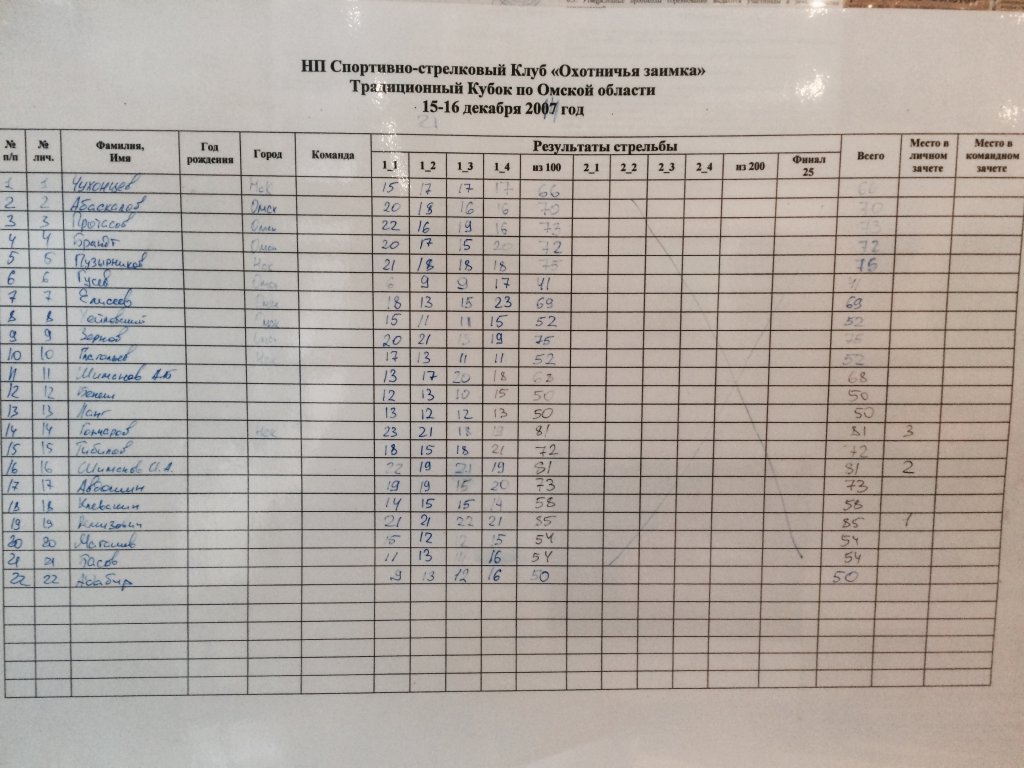 НП Спортивно-стрелковый Клуб «Охотничья заимка»
Традиционный Кубок по Омской области
15-16 декабря 2007 год
21 14
№ п/п № лич. Фамилия, Имя Год рождения Город Команда Результаты стрельбы Всего Место в личном зачете Место в командном зачете
1_1 1_2 1_3 1_4 из 100 2_1 2_2 2_3 2_4 из 200 Финал 25
1 1 Чухонцев 15 17 17 17 66 66
2 2 Абаскалов Омск 20 18 16 16 70 70
3 3 Протасов Омск 22 16 19 16 73 73
4 4 Брандт Омск 20 17 15 20 72 72
5 5 Пузырников 21 18 18 18 75 75
6 6 Гусев Омск 6 9 9 17 41 41
7 7 Елисеев Омск 18 13 15 23 69 69
8 8 15 11 11 15 52 52
9 9 Зорнов 20 21 15 19 75 75
10 10 17 13 11 11 52 52
11 11 Шимонов А.Б 13 17 20 18 68 68
12 12 Бенеш 12 13 10 15 50 50
13 13 Ланг 13 12 12 13 50 50
14 14 Гончаров 23 21 18 19 81 81 3
15 15 Тибилов 18 15 18 21 72 72
16 16 Шимонов 22 19 21 19 81 81 2
17 17 Авдошин 19 19 15 20 73 73
18 18 Клевакин 14 15 15 14 58 58
19 19 21 21 22 21 85 85 1
20 20 15 12 12 15 54 54
21 21 Басов 11 13 16 54 54
22 22 9 13 12 16 50 50